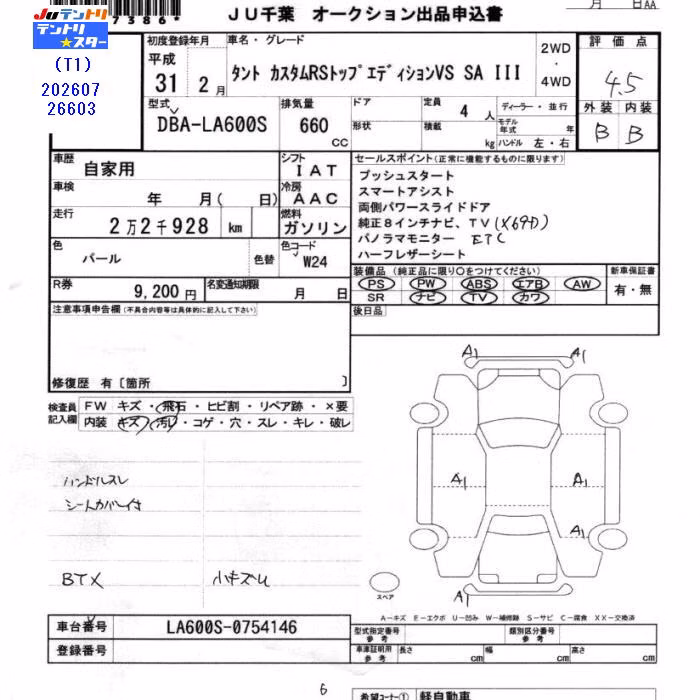 7386*
JU千葉 オークション出品申込書
月 日AA
JUテントリ
テントリ★スター
(T1)
202607
26603
初度登録年月
平成
31 2月
車名・グレード
タント カスタムRSトップエディションVS SA III
2WD
・
4WD
評価点
4.5
外装 内装
B B
型式
DBA-LA600S
排気量
660 CC
ドア
形状
定員 4 人
積載 kg
ディーラー・並行
モデル年式 年
ハンドル 左・右
車歴 自家用
シフト IAT
車検 年 月( 日)
冷房 AAC
走行 2万2千928 km
燃料 ガソリン
色 パール 色替
色コード W24
R券 9,200円
名変通知期限 月 日
セールスポイント(正常に機能するものに限ります)
プッシュスタート
スマートアシスト
両側パワースライドドア
純正8インチナビ、TV(X69D)
パノラマモニター ETC
ハーフレザーシート
装備品(純正品に限り○をつけてください)
PS PW ABS エアB AW
SR ナビ TV カワ
新車保証書
有・無
後日品
注意事項申告欄(不具合内容等は具体的に記入して下さい)
修復歴 有〔箇所 〕
検査員記入欄
FW キズ・飛石・ヒビ割・リペア跡・×要
内装 キズ・汚レ・コゲ・穴・スレ・キレ・破レ
ハンドルスレ
シートカバー付
BTX 小キズU
A1 A1
A1 A1
A1
A1
スペア
A-キズ E-エクボ U-凹み W-補修跡 S-サビ C-腐食 XX-交換済
車台番号 LA600S-0754146
登録番号
型式指定番号 参考
類別区分番号 参考
車庫証明用 参考 長さ cm 幅 cm 高さ cm
6
希望コーナー① 軽自動車